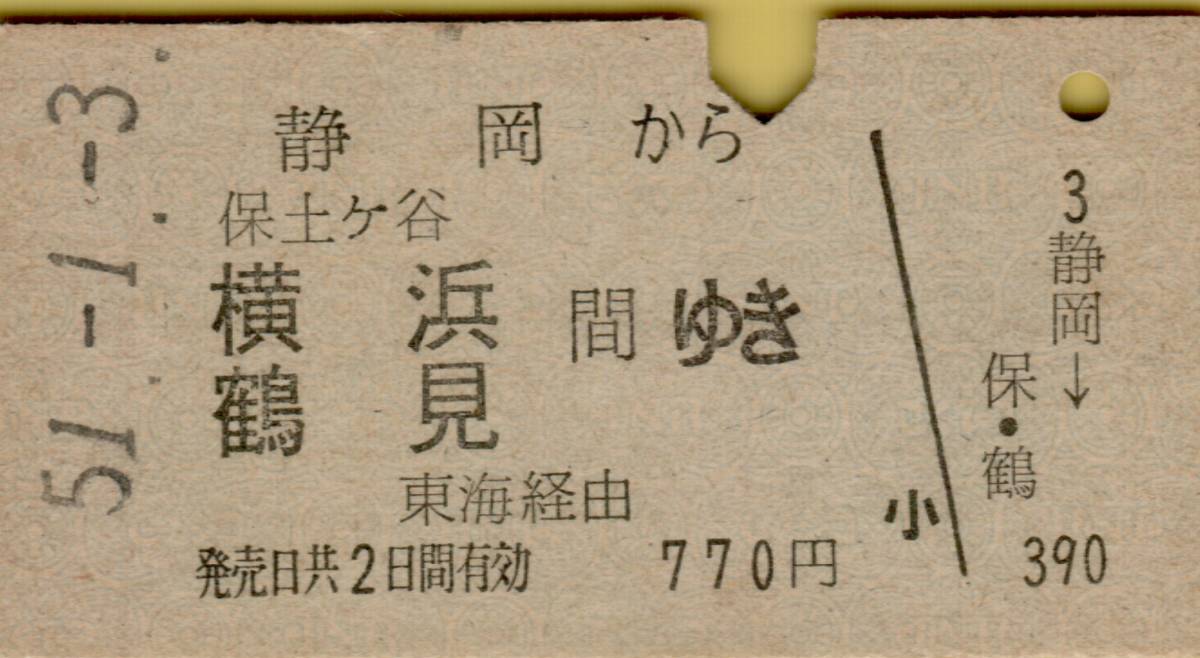 51.-1.-3.
静岡から
保土ケ谷
横浜間ゆき
鶴見
東海経由
発売日共2日間有効 770円
小
3
静岡→
保・鶴
390